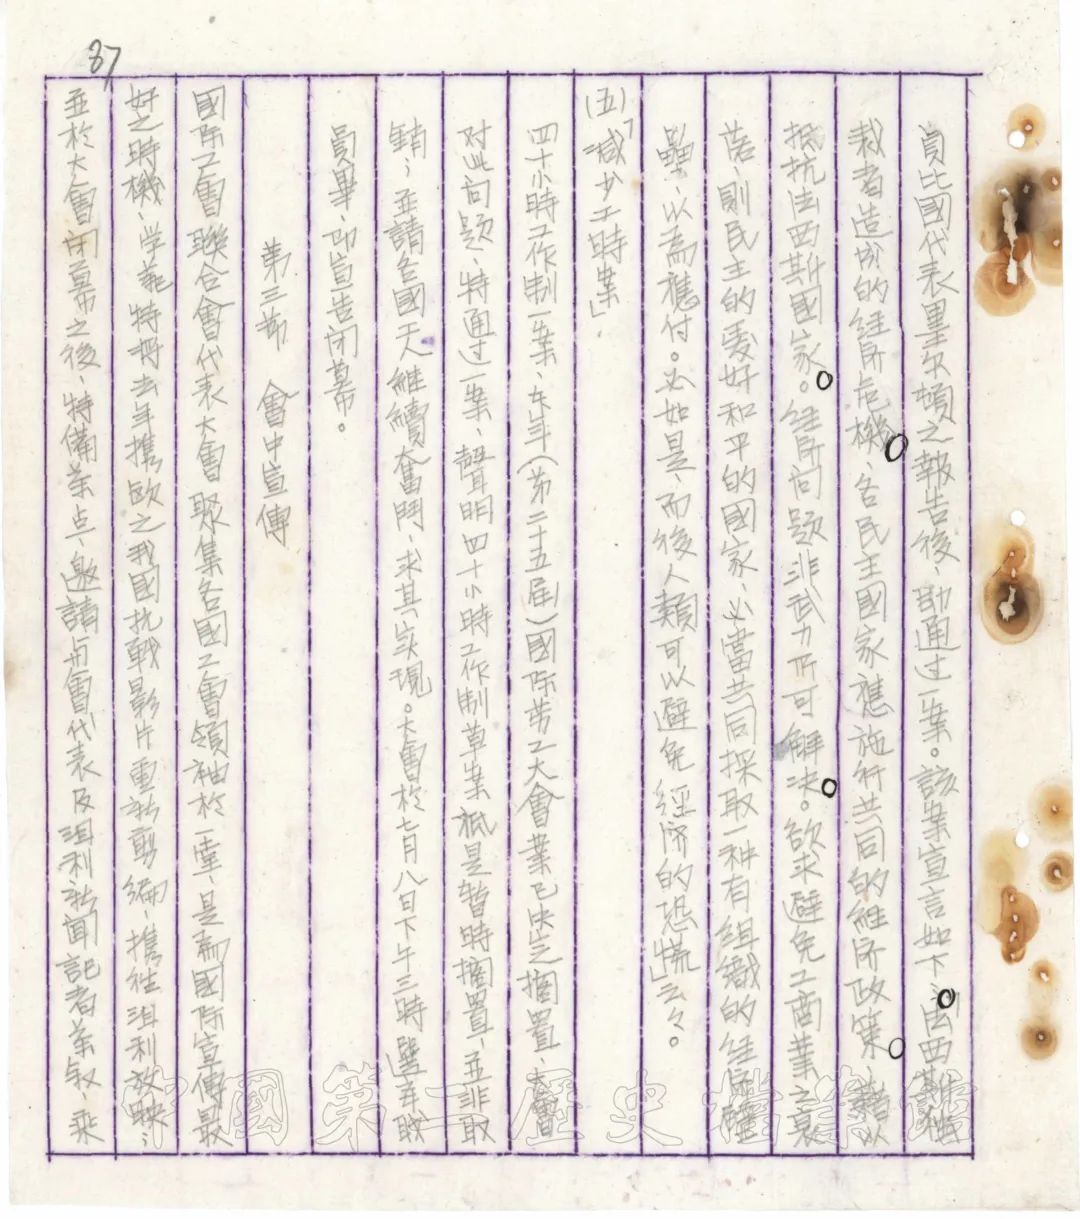 87
員比國代表墨尔頓之報告後、即通过一案。該案宣言如下「因西斯独
裁者造成的经济危機、各民主國家應施行共同的经济政策、藉以
抵抗法西斯國家。经济问题非武力所可解决。欲求避免工商業之衰
落、则民主的爱好和平的國家、必當共同採取一种有组織的经济
以為應付。必如是、而後人類可以避免经济的恐慌」云々。
(五)「减少工時案」
四十小時工作制一案、在本年(第二十五届)國际劳工大會業已决定擱置、大會
对此问题、特通过一案、聲明四十小時工作制草案祗是暫時擱置、並非取
銷、並請各國工人継續奮鬥、求其实現。大會於七月八日下午三時選举職
員畢、即宣告闭幕。
第三节 會中宣傳
國际工會聯合會代表大會聚集各國工會領袖於一堂、是為國际宣傳最
好之時機、学範特将去年携欧之我國抗戰影片重新剪编、携往洱利放映、
並於大會闭幕之後、特備茶点、邀請與會代表及洱利新闻記者茶叙、乘
中國第二歷史檔案館